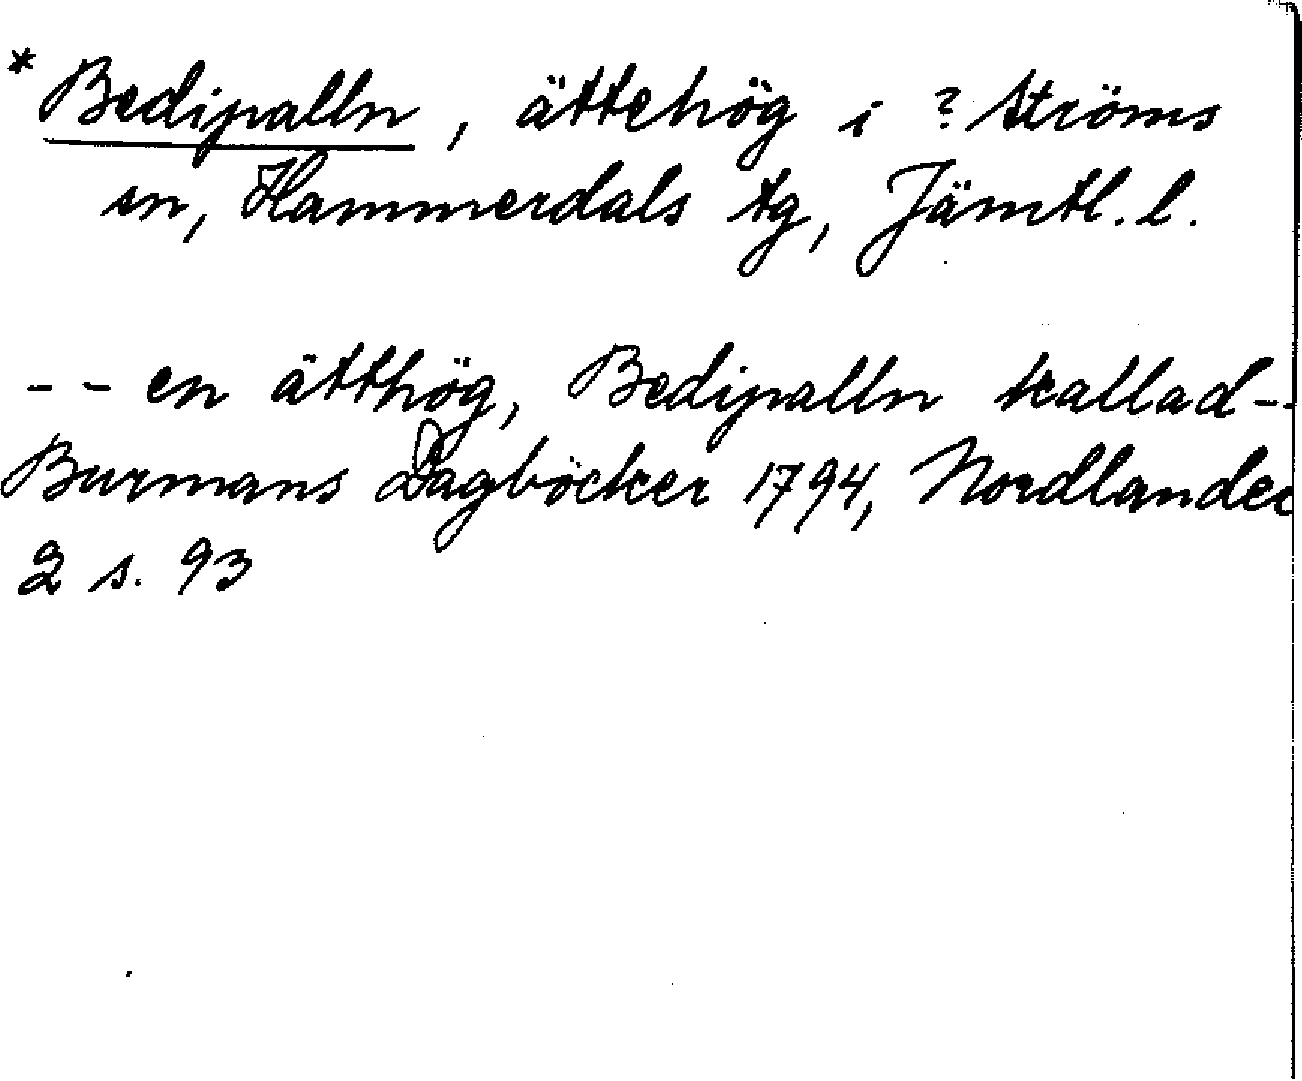 * Bedipalln, ättehög i ? Ströms
sn, Hammerdals tg, Jämtl. l.
-- en ätthög, Bedipalln kallad--
Burmans Dagböcker 1794, Nordlander
2 s. 93